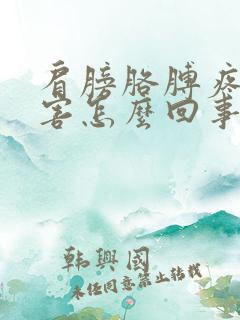 肩膀胳膊疼
害怎麼回事
韩興國
未经同意禁止转载